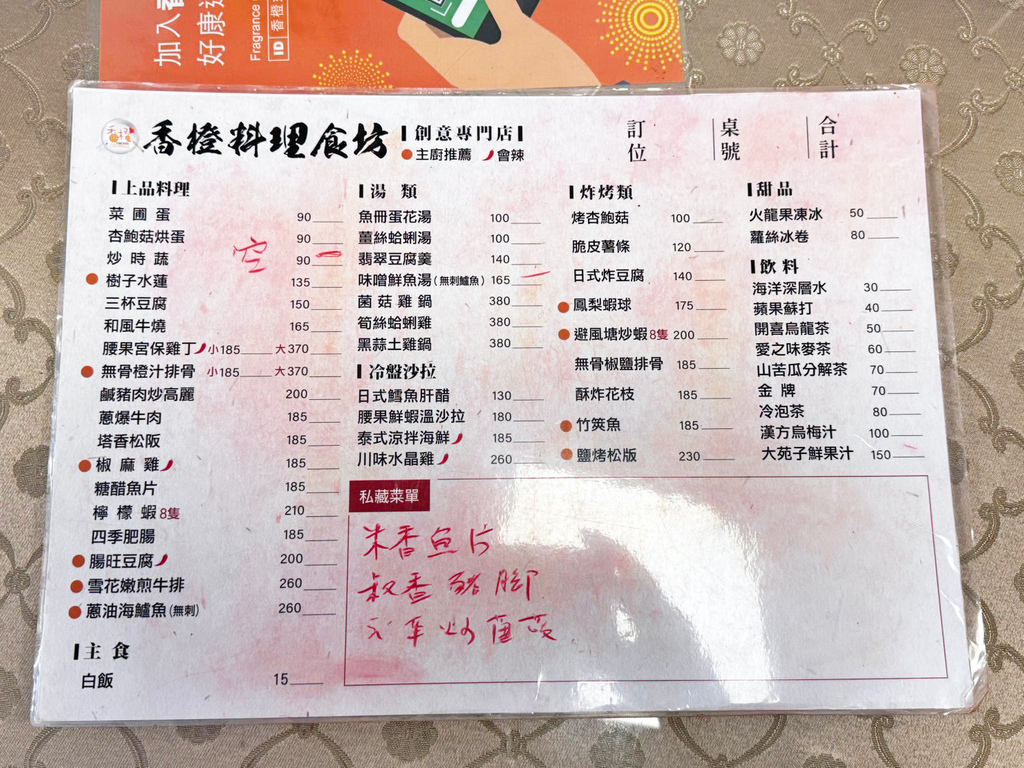 加入香
好康
Fragrance
ID 香橙
香橙料理食坊
創意專門店
主廚推薦 會辣
訂位
桌號
合計
上品料理
菜圃蛋 90
杏鮑菇烘蛋 90
炒時蔬 90
空
樹子水蓮 135
三杯豆腐 150
和風牛燒 165
腰果宮保雞丁 小185 大370
無骨橙汁排骨 小185 大370
鹹豬肉炒高麗 200
蔥爆牛肉 185
塔香松阪 185
椒麻雞 185
糖醋魚片 185
檸檬蝦8隻 210
四季肥腸 185
腸旺豆腐 200
雪花嫩煎牛排 260
蔥油海鱸魚(無刺) 260
主食
白飯 15
湯類
魚冊蛋花湯 100
薑絲蛤蜊湯 100
翡翠豆腐羹 140
味噌鮮魚湯(無刺鱸魚) 165
菌菇雞鍋 380
筍絲蛤蜊雞 380
黑蒜土雞鍋 380
冷盤沙拉
日式鱈魚肝醋 130
腰果鮮蝦溫沙拉 180
泰式涼拌海鮮 185
川味水晶雞 260
炸烤類
烤杏鮑菇 100
脆皮薯條 120
日式炸豆腐 140
鳳梨蝦球 175
避風塘炒蝦8隻 200
無骨椒鹽排骨 185
酥炸花枝 185
竹筴魚 185
鹽烤松版 230
甜品
火龍果凍冰 50
蘿絲冰卷 80
飲料
海洋深層水 30
蘋果蘇打 40
開喜烏龍茶 50
愛之味麥茶 60
山苦瓜分解茶 70
金牌 70
冷泡茶 80
漢方烏梅汁 100
大苑子鮮果汁 150
私藏菜單
米香魚片
香豬腳